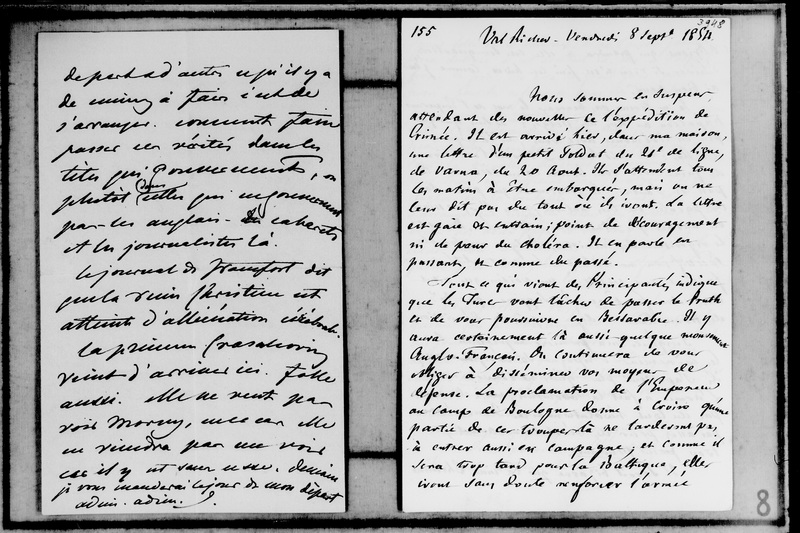 de part et d'autre
de mieux à faire c'est de
s'arranger. comment faire
passer ces vérités dans les
têtes qui gouvernent, ou
plutôt dans celles qui
par les anglais - cabarets
et les journalistes là.
le journal de francfort dit
que la reine Christine est
atteinte d'alliénation cérébrale.
la princesse
vient d'arriver ici. folle
aussi. elle ne veut pas
voir Morny, elle
ne viendra pas me voir
car il y est sans cesse. demain
je vous manderai le jour de mon départ
adieu. adieu.
155
3948
Val Richer - Vendredi 8 Septe 1854
Nous sommes en suspens
attendant des nouvelles de l'expédition de
Crimée. Il est arrivé hier, dans ma maison,
une lettre d'un petit soldat du 21e de ligne,
de Varna, du 20 Aout. Ils s'attendent tous
les matins à être embarqués, mais on ne
leur dit pas du tout où ils iront. La lettre
est gaie et entrain; point de découragement
ni de peur du choléra. Il en parle en
passant, et comme du passé.
Tout ce qui vient des Principautés indique
que les Turcs vont tâcher de passer le Pruth
et de vous poursuivre en Bessarabie. Il y
aura certainement là aussi quelque mouvement
Anglo-Français. On continuera de vous
obliger à disséminer vos moyens de
défense. La proclamation de l'Empereur
au camp de Boulogne donne à croire qu'une
partie de ces troupes là ne tarderont pas
à entrer aussi en campagne, et comme il
sera trop tard pour la Baltique, elles
iront sans doute renforcer l'armée
8